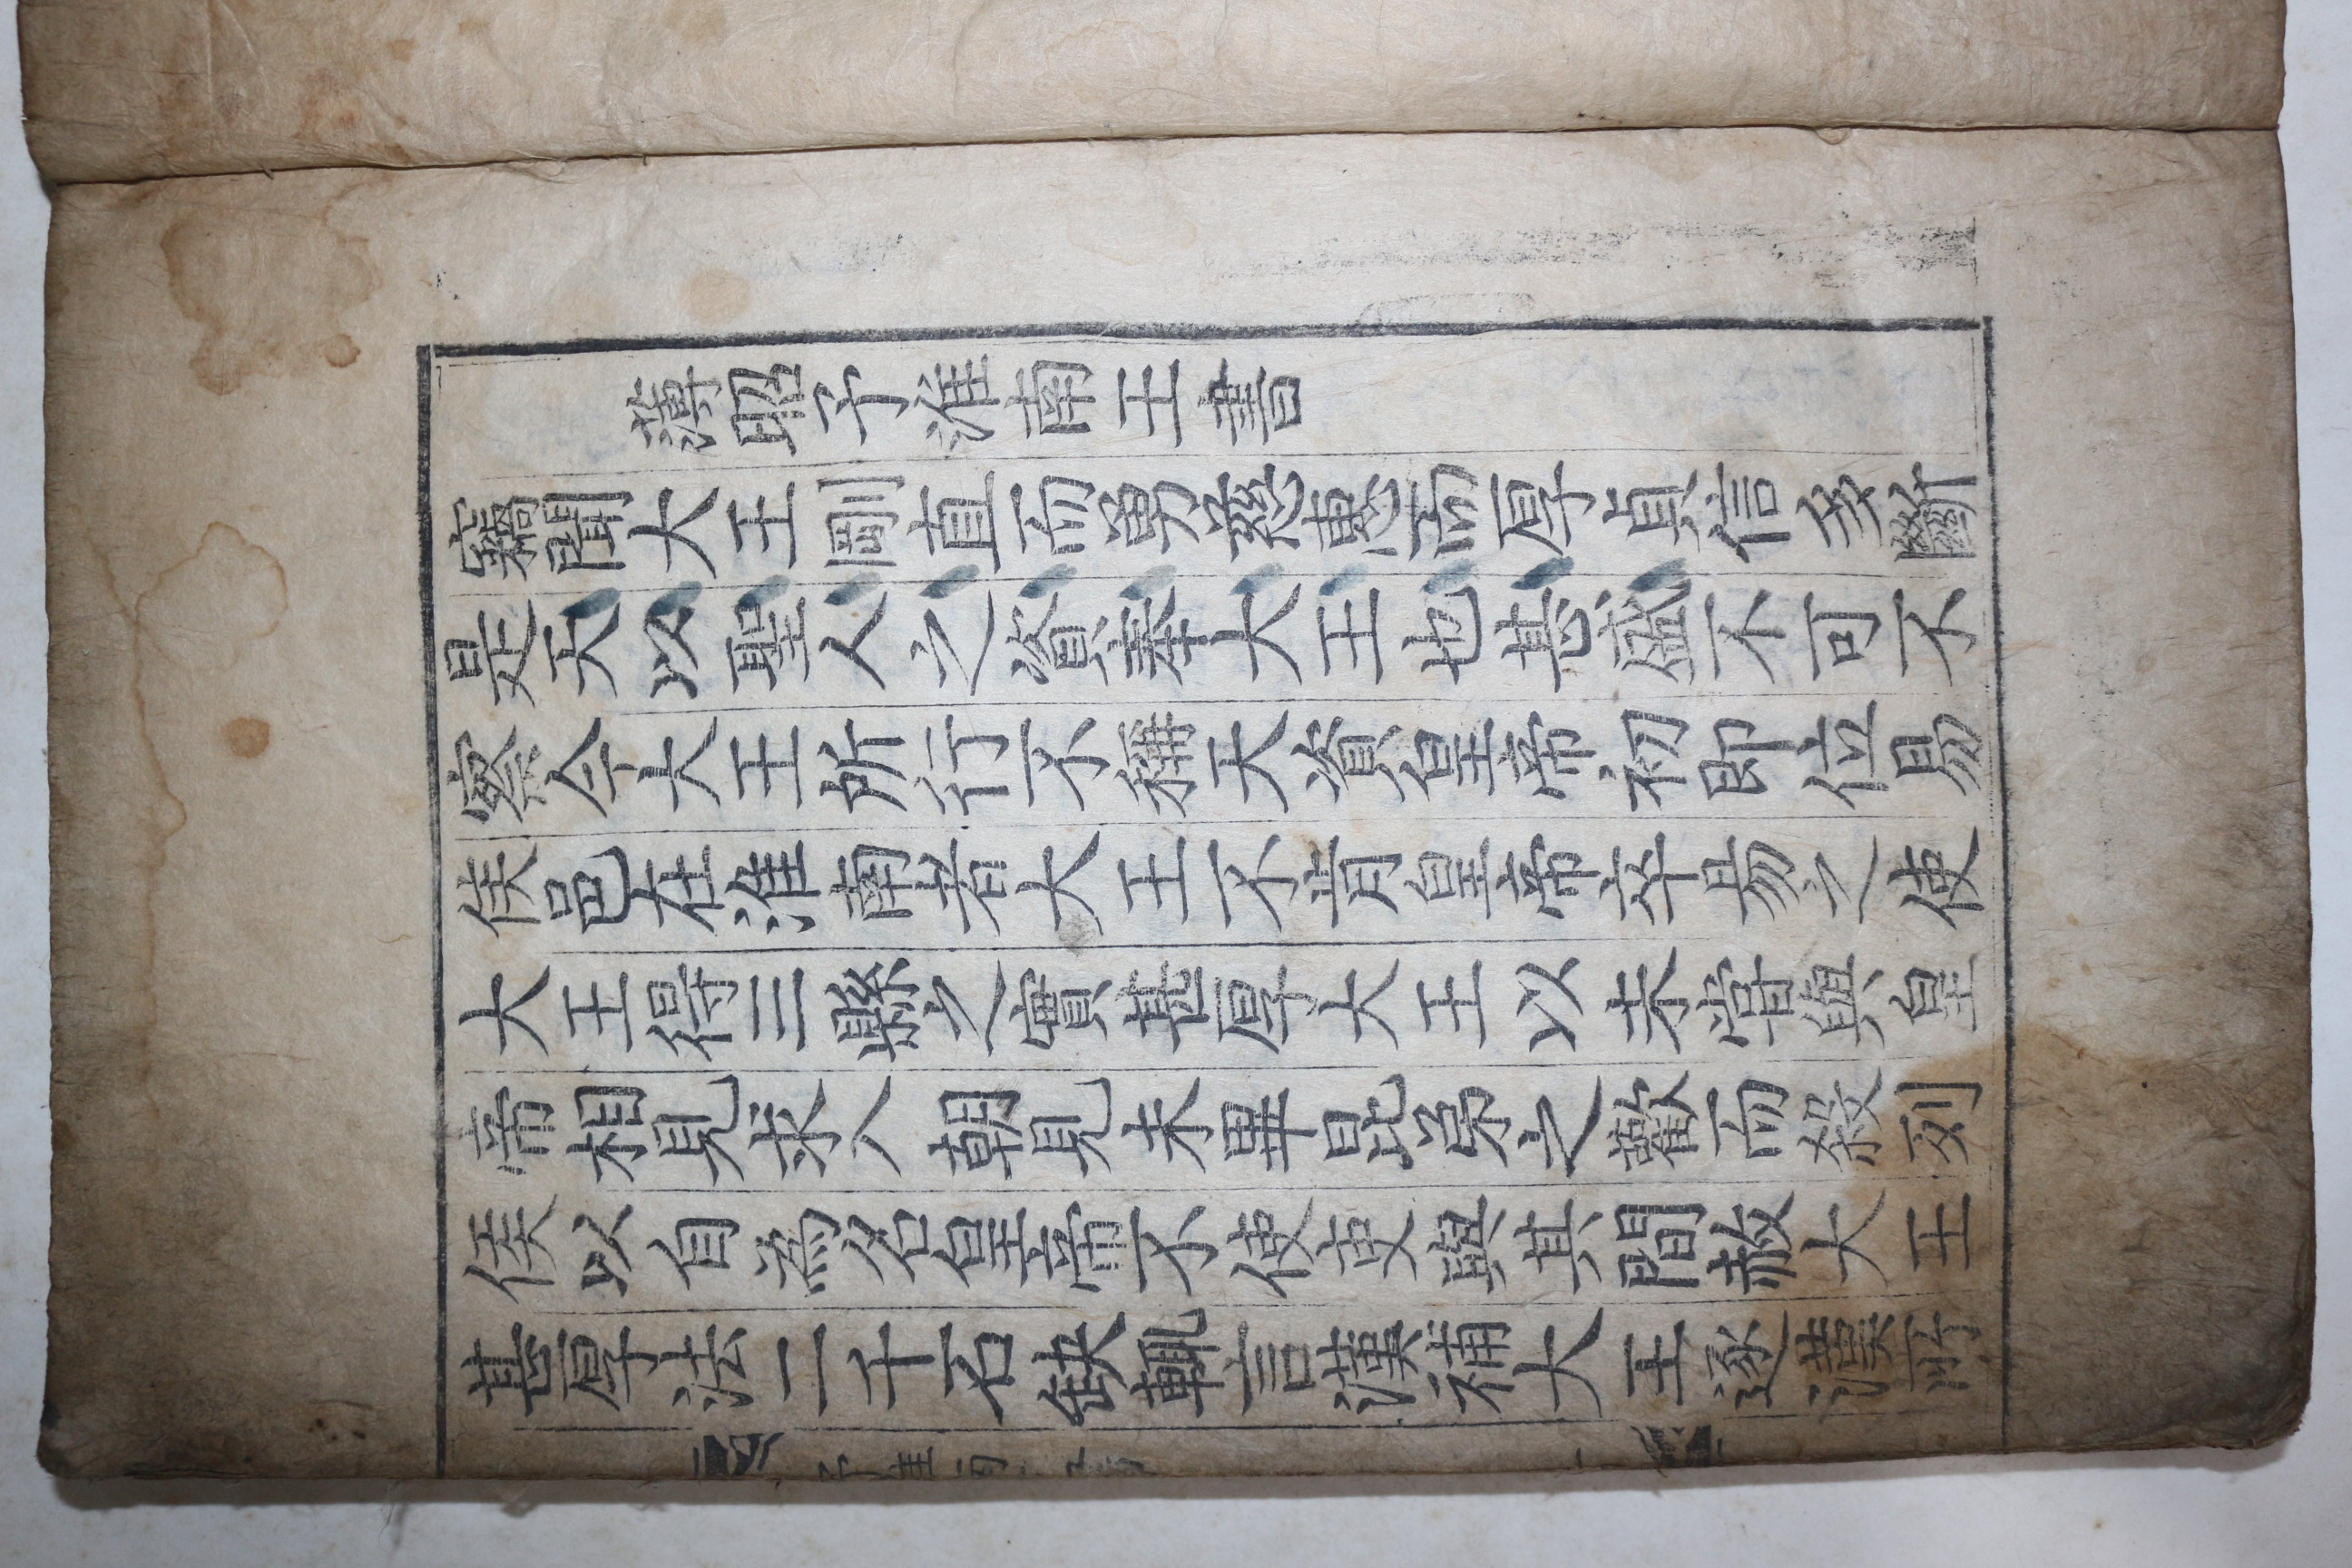 薄昭予淮南王書
竊聞大王剛直而勇慈惠而厚貞信多斷
是天以聖人之資奉大王也甚盛不可不
察今大王所行不稱天資皇帝初即位易
侯邑在淮南者大王不肯皇帝卒易之使
大王得三縣之實甚厚大王以未嘗與皇
帝相見求入朝見未畢昆弟之歡而殺列
侯以自爲名皇帝不使吏與其間赦大王
甚厚法二千石缺輒言漢補大王逐漢所
予淮南